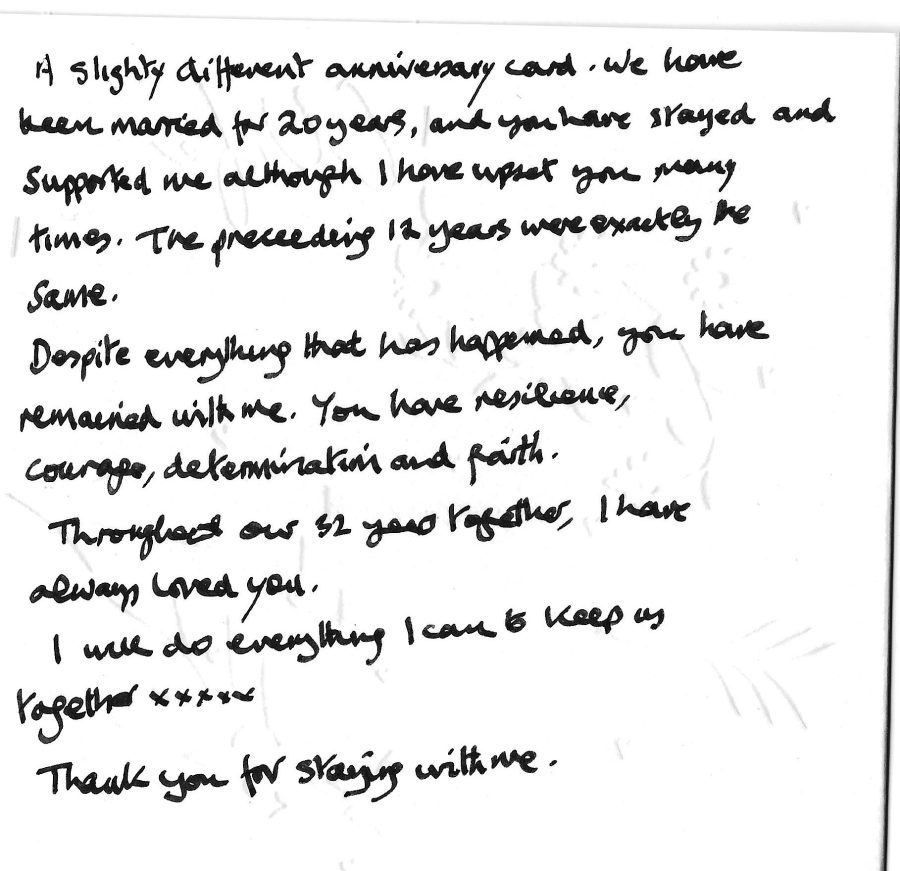 A slighty different anniversary card. We have
been married for 20 years, and you have stayed and
supported me although I have upset you many
times. The preceeding 12 years were exactly the
same.
Despite everything that has happened, you have
remained with me. You have resilience,
courage, determination and faith.
Throughout our 32 years together, I have
always loved you.
I will do everything I can to keep us
together xxxxx
Thank you for staying with me.